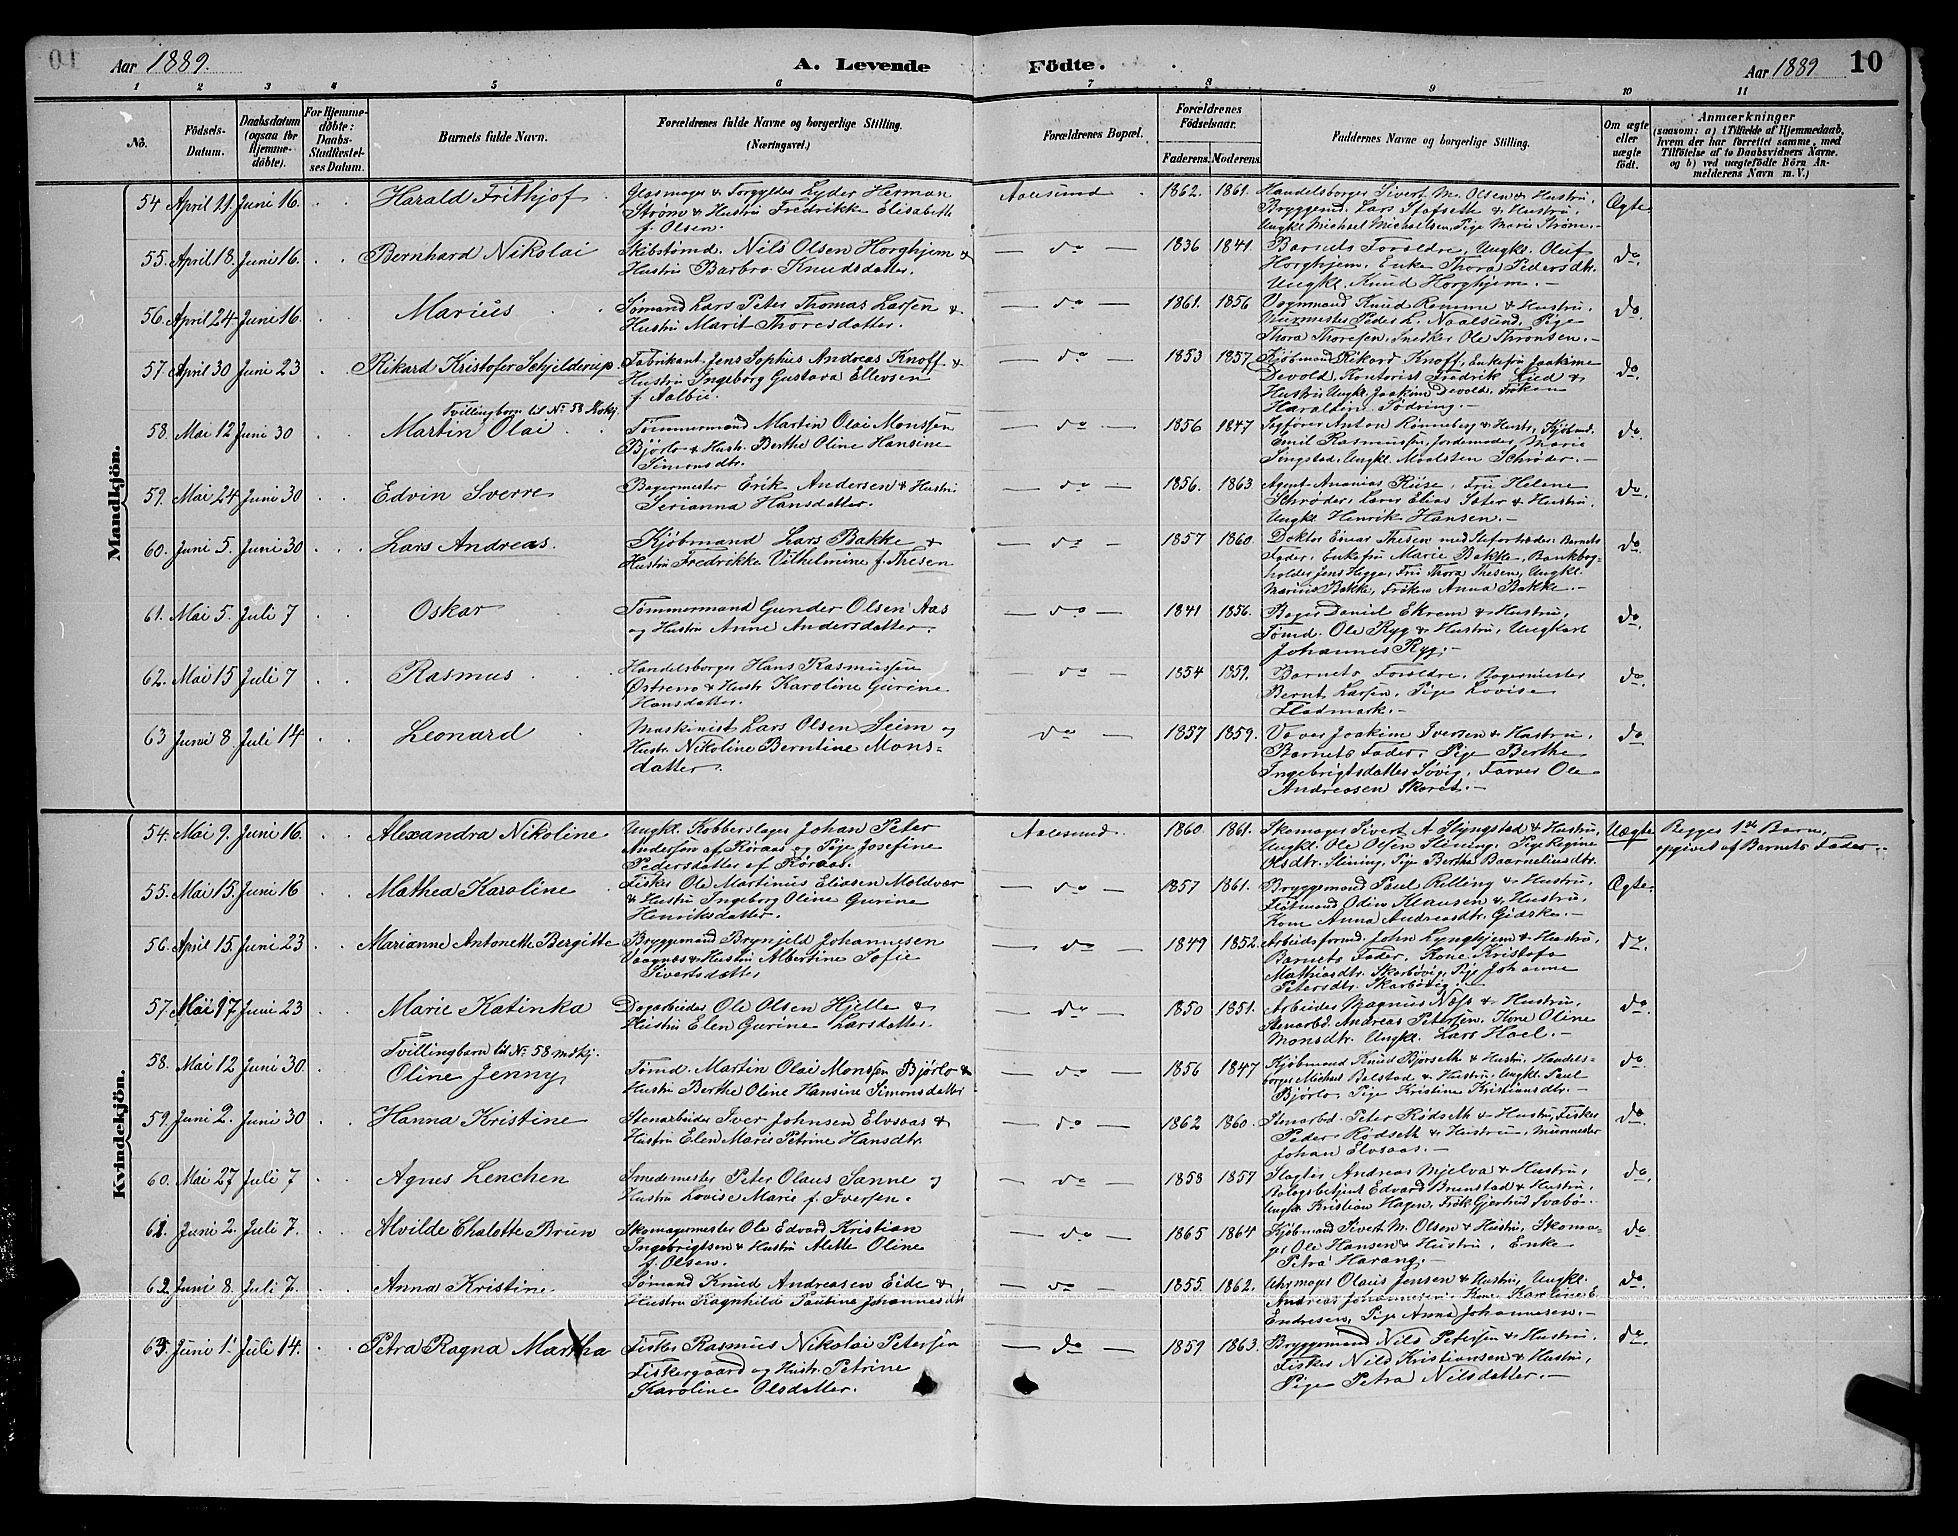 Aar 1889. A. Levende Födte. Aar 1889 10
1 2 3 4 5 6 7 8 9 10 11
No. Födsels-Datum. Daabsdatum (ogsaa for Hjemme-döbte). For Hjemme-döbte: Daabs-Stadfæstel-ses Datum. Barnets fulde Navn. Forældrenes fulde Navne og borgerlige Stilling. (Næringsvei.) Forældrenes Bopæl. Forældrenes Födselsaar. Faderens. Moderens. Faddernes Navne og borgerlige Stilling. Om ægte eller uægte födt. Anmærkninger
(saasom: a) i Tilfælde af Hjemmedaab, hvem der har forrettet samme, med Tilföielse af to Daabsvidners Navne, og b) ved uægtefödte Börn Anmelderens Navn m. V.)
Mandkjön.
54 April 11. Juni 16. Harald Frithjof Glasmager & Forgylder Lyder Herman Aalesund 1862. 1861. Handelsborger Sivert M. Olsen & Hustru, Ægte
Strøm & Hustru Fredrikke Elisabeth Bryggemd. Lars & Hustru,
f. Olsen. Ungkl. Michael Michaelsen, Pige Marie Strøm.
55. April 18. Juni 16. Bernhard Nikolai Skibstømd. Nils Olsen Horghjem & do 1836 1841 Barnets Forældre, Ungkl. Oluf do.
Hustru Barbro Knudsdatter. Horghjem, Enke Thora Pedersdtr.
Ungkl. Knud Horghjem.
56. April 24 Juni 16. Marius Sømand Lars Peter Thomas Larsen & do 1861. 1856 Vognmand Knud Ramme & Hustru, do.
Hustru Marit Thoresdatter. Murmester Peder L. Naalsund, Pige
Thora Thoresen, Snedker Ole Thronsen.
57. April 30 Juni 23 Rikard Kristofer Schjelderup Fabrikant Jens Sophus Andreas Knoff & do 1853 1857 Kjøbmand Rikard Knoff, Enkefru Joakime do
Hustru Ingeborg Gustava Ellevsen Devold, Kontorist Fredrik &
f. Aalbu. Hustru Ungkl. Joakim Devold, Frøken
Haraldine Sødring.
Tvillingbarn til No 58 Kvkj.
58. Mai 12 Juni 30 Martin Olai Tømmermand Martin Olai Monssen do 1856 1847 Anton Rønneberg & Hustr., Kjøbmd. do.
Bjørlo & Hustr. Berthe Oline Hansine Emil Rasmussen, Jordemoder Marie
Simonsdtr. Singstad, Ungkl. Schrøder.
59. Mai 24 Juni 30 Edvin Sverre Bagermester Erik Andersen & Hustru do 1856. 1863 Agent Ananias Riise, Fru Helene do.
Serianna Hansdatter. Schrøder, Lærer Elias Sæter & Hustru,
Ungkl. Henrik Hansen.
60. Juni 5. Juni 30 Lars Andreas. Kjøbmand Lars Bakke & do 1857 1860. Doktor Einar Thesen med Stefortræder: Barnets do
Hustru Fredrikke Vilhelmine f. Thesen Fader, Enkefru Marie Bakke, Bankbog-
holder Jens Hegge, Fru Thora Thesen, Ungkl.
Marius Bakke, Frøken Anna Bakke.
61. Mai 5. Juli 7 Oskar Tømmermand Gunder Olsen Aas do 1841 1856. Bager Daniel Ekrem & Hustru, do
og Hustru Anne Andersdatter. Tømd. Ole Ryg & Hustru, Ungkarl
Johannes Ryg.
62. Mai 15 Juli 7 Rasmus Handelsborger Hans Rasmussen do 1854 1859. Barnets Forældre, Bagermester do.
Østrem & Hustr. Karoline Gurine Bernt Larsen, Pige Lovise
Hansdatter. Fladmark.
63 Juni 8 Juli 14 Leonard Maskinist Lars Olsen Seim og do 1857 1859. Væver Joakim Iversen & Hustru, do
Hustr. Nikoline Berntine Mons- Barnets Fader, Pige Berthe
datter. Ingebrigtsdatter Søvig, Farver Ole
Andreasen Skaret.
Kvindekjön.
54. Mai 9. Juni 16. Alexandra Nikoline Ungkl. Kobberslager Johan Peter Aalesund. 1860. 1861. Skomager Sivert A. Slyngstad & Hustru, Uægte Begges 1ste Barn,
Andersen af Røraas og Pige Josefine Ungkl. Ole Olsen Sløning, Pige Regine opgivet af Barnets Fader.
Pedersdatter af Røraas. Olsdtr. Sløning, Pige Berthe
55. Mai 15. Juni 16 Mathea Karoline Fisker Ole Martinus Eliasen Moldvær do 1857 1861. Bryggemand Paul Relling & Hustru, Ægte
& Hustru Ingeborg Oline Gurine Fløtmand Odin Klausen & Hustru,
Henriksdatter. Kone Anna Andreasdtr. Gidske.
56. April 15. Juni 23 Marianne Antonette Bergitte Bryggemand Brynjeld Johannesen do 1849 1852. Arbeidsformd. John Lynghjem & Hustru, do.
Vaagnæs & Hustru Albertine Sofie Barnets Fader, Kone Kristofa
Sivertsdatter Mathiasdtr. Skarbøvig, Pige Johanne
Petersdtr. Skarbøvig.
57. Mai 17 Juni 23 Marie Katinka Dagarbeider Ole Olsen Hjelle & do 1850 1851. Arbeider Magnus Næss & Hustru, do
Hustru Elen Gurine Larsdatter. Stenarbd. Andreas Petersen, Kone Oline
Monsdtr. Ungkl. Lars Hoel.
Tvillingbarn til No 58 mdkj.
58. Mai 12 Juni 30. Oline Jenny Tømd. Martin Olai Monssen Bjørlo & do 1856 1847 Kjøbmand Knud Bjørseth & Hustru, Handels- do
Hustru Berthe Oline Hansine Simonsdatter borger Michael Balstad & Hustru, Ungkl. Paul
Bjørlo, Pige Kristine Kristiansdtr.
59. Juni 2. Juni 30 Hanna Kristine Stenarbeider Iver Johnsen Elvsaas & do 1862 1860. Stenarbd. Peter Rødseth & Hustru, Fisker do
Hustru Elen Marie Petrine Hansdtr. Peder Rødseth & Hustru, Murmester
Johan Elvsaas.
60. Mai 27 Juli 7 Agnes Lenchen Smedemester Peter Olaus Sanne og do 1858 1857 Slagter Andreas Mjelva & Hustru, do
Hustru Lovise Marie f. Iversen. Bologsbetjent Edvard Brunstad & Hustru,
Ungkl. Kristian Hagen, Frøk. Gjertrud Svabø.
61. Juni 2. Juli 7. Alvilde Chalotte Brun Skomagermester Ole Edvard Kristian do 1865 1864 Kjøbmand Sivert M. Olsen & Hustru, Skoma- do
Ingebrigtsen & Hustru Alette Oline ger Ole Hansen & Hustru, Enke
f. Olsen. Petra Harang.
62 Juni 8 Juli 7. Anna Kristine Sømand Knud Andreasen Eide & do 1855 1862. Uhrmager Olaus Jensen & Hustru, Ungkl. do.
Hustru Ragnhild Pauline Johannesdtr Andreas Johannesen, Kone Karoline E.
Endresen, Pige Anna Johannesen.
63. Juni 1. Juli 14. Petra Ragna Martha Fisker Rasmus Nikolai Petersen do 1859 1863. Bryggemand Nils Petersen & Hustru, do
Fiskergaard og Hustr. Petrine Fisker Nils Kristiansen & Hustru,
Karoline Olsdatter. Pige Petra Nilsdatter.